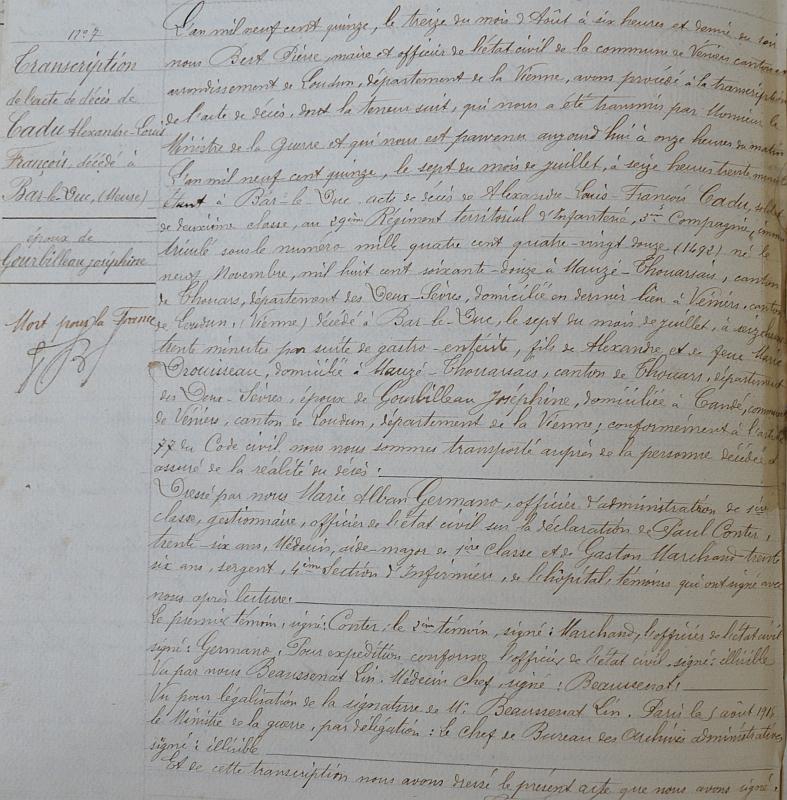 n° 7
Transcription
de l'acte de décès de
Cadu Alexandre-Louis
François, décédé à
Bar-le-Duc, (Meuse)
époux de
Gourbilleau Joséphine
Mort pour la France
L'an mil neuf cent quinze, le treize du mois d'Août à six heures et demie du soir
nous Bert Pierre, maire et officier de l'état civil de la commune de Véniers canton et
arrondissement de Loudun, département de la Vienne, avons procédé à la transcription
de l'acte de décès, dont la teneur suit, qui nous a été transmis par Monsieur le
Ministre de la Guerre et qui nous est parvenu aujourd'hui à onze heures du matin
L'an mil neuf cent quinze, le sept du mois de juillet, à seize heures trente minutes
étant à Bar-le-Duc acte de décès de Alexandre-Louis-François Cadu, soldat
de deuxième classe, au 29ème Régiment territorial d'Infanterie, Compagnie, imma
triculé sous le numéro mille quatre cent quatre-vingt douze (1492) né le
neuf Novembre, mil huit cent soixante-douze à Mauzé-Thouarsais, canton
de Thouars, département des Deux-Sèvres, domiciliée en dernier lieu à Véniers, canton
de Loudun, (Vienne) décédé à Bar-le-Duc, le sept du mois de juillet, à seize heures
trente minutes par suite de gastro-entérite, fils de Alexandre, et de feue Marie
Drouisseau, domiciliée à Mauzé-Thouarsais, canton de Thouars, département
des Deux-Sèvres, époux de Gourbilleau Joséphine, domiciliée à Candé, commune
de Véniers, canton de Loudun, département de la Vienne; conformément à l'article
77 du Code civil, nous nous sommes transporté auprès de la personne décédée et
assuré de la réalité du décès.
Dressé par nous Marie Alban Germano, officier d'administration de 1ère
classe, gestionnaire, officier de l'état civil sur la déclaration de Paul Conter,
trente-six ans, Médecin, aide-major de 1ère classe et de Gaston Marchand trente
six ans, sergent, 4ème Section d'Infirmiers, de l'hôpital, témoins qui ont signé avec
nous après lecture.
Le premier témoin, signé: Conter; le 2ème témoin, signé: Marchand, l'officier de l'état civil
signé: Germano. Pour expédition conforme, l'officier de l'état civil, signé: illisible
Vu par nous Beaussenat Lin. Médecin Chef, signé: Beaussenat.
Vu pour légalisation de la signature de Mr Beaussenat Lin. Paris le 5 août 1915
le Ministre de la guerre, par délégation: le Chef de Bureau des Archives administratives
signé: illisible
Et de cette transcription nous avons dressé le présent acte que nous avons signé.